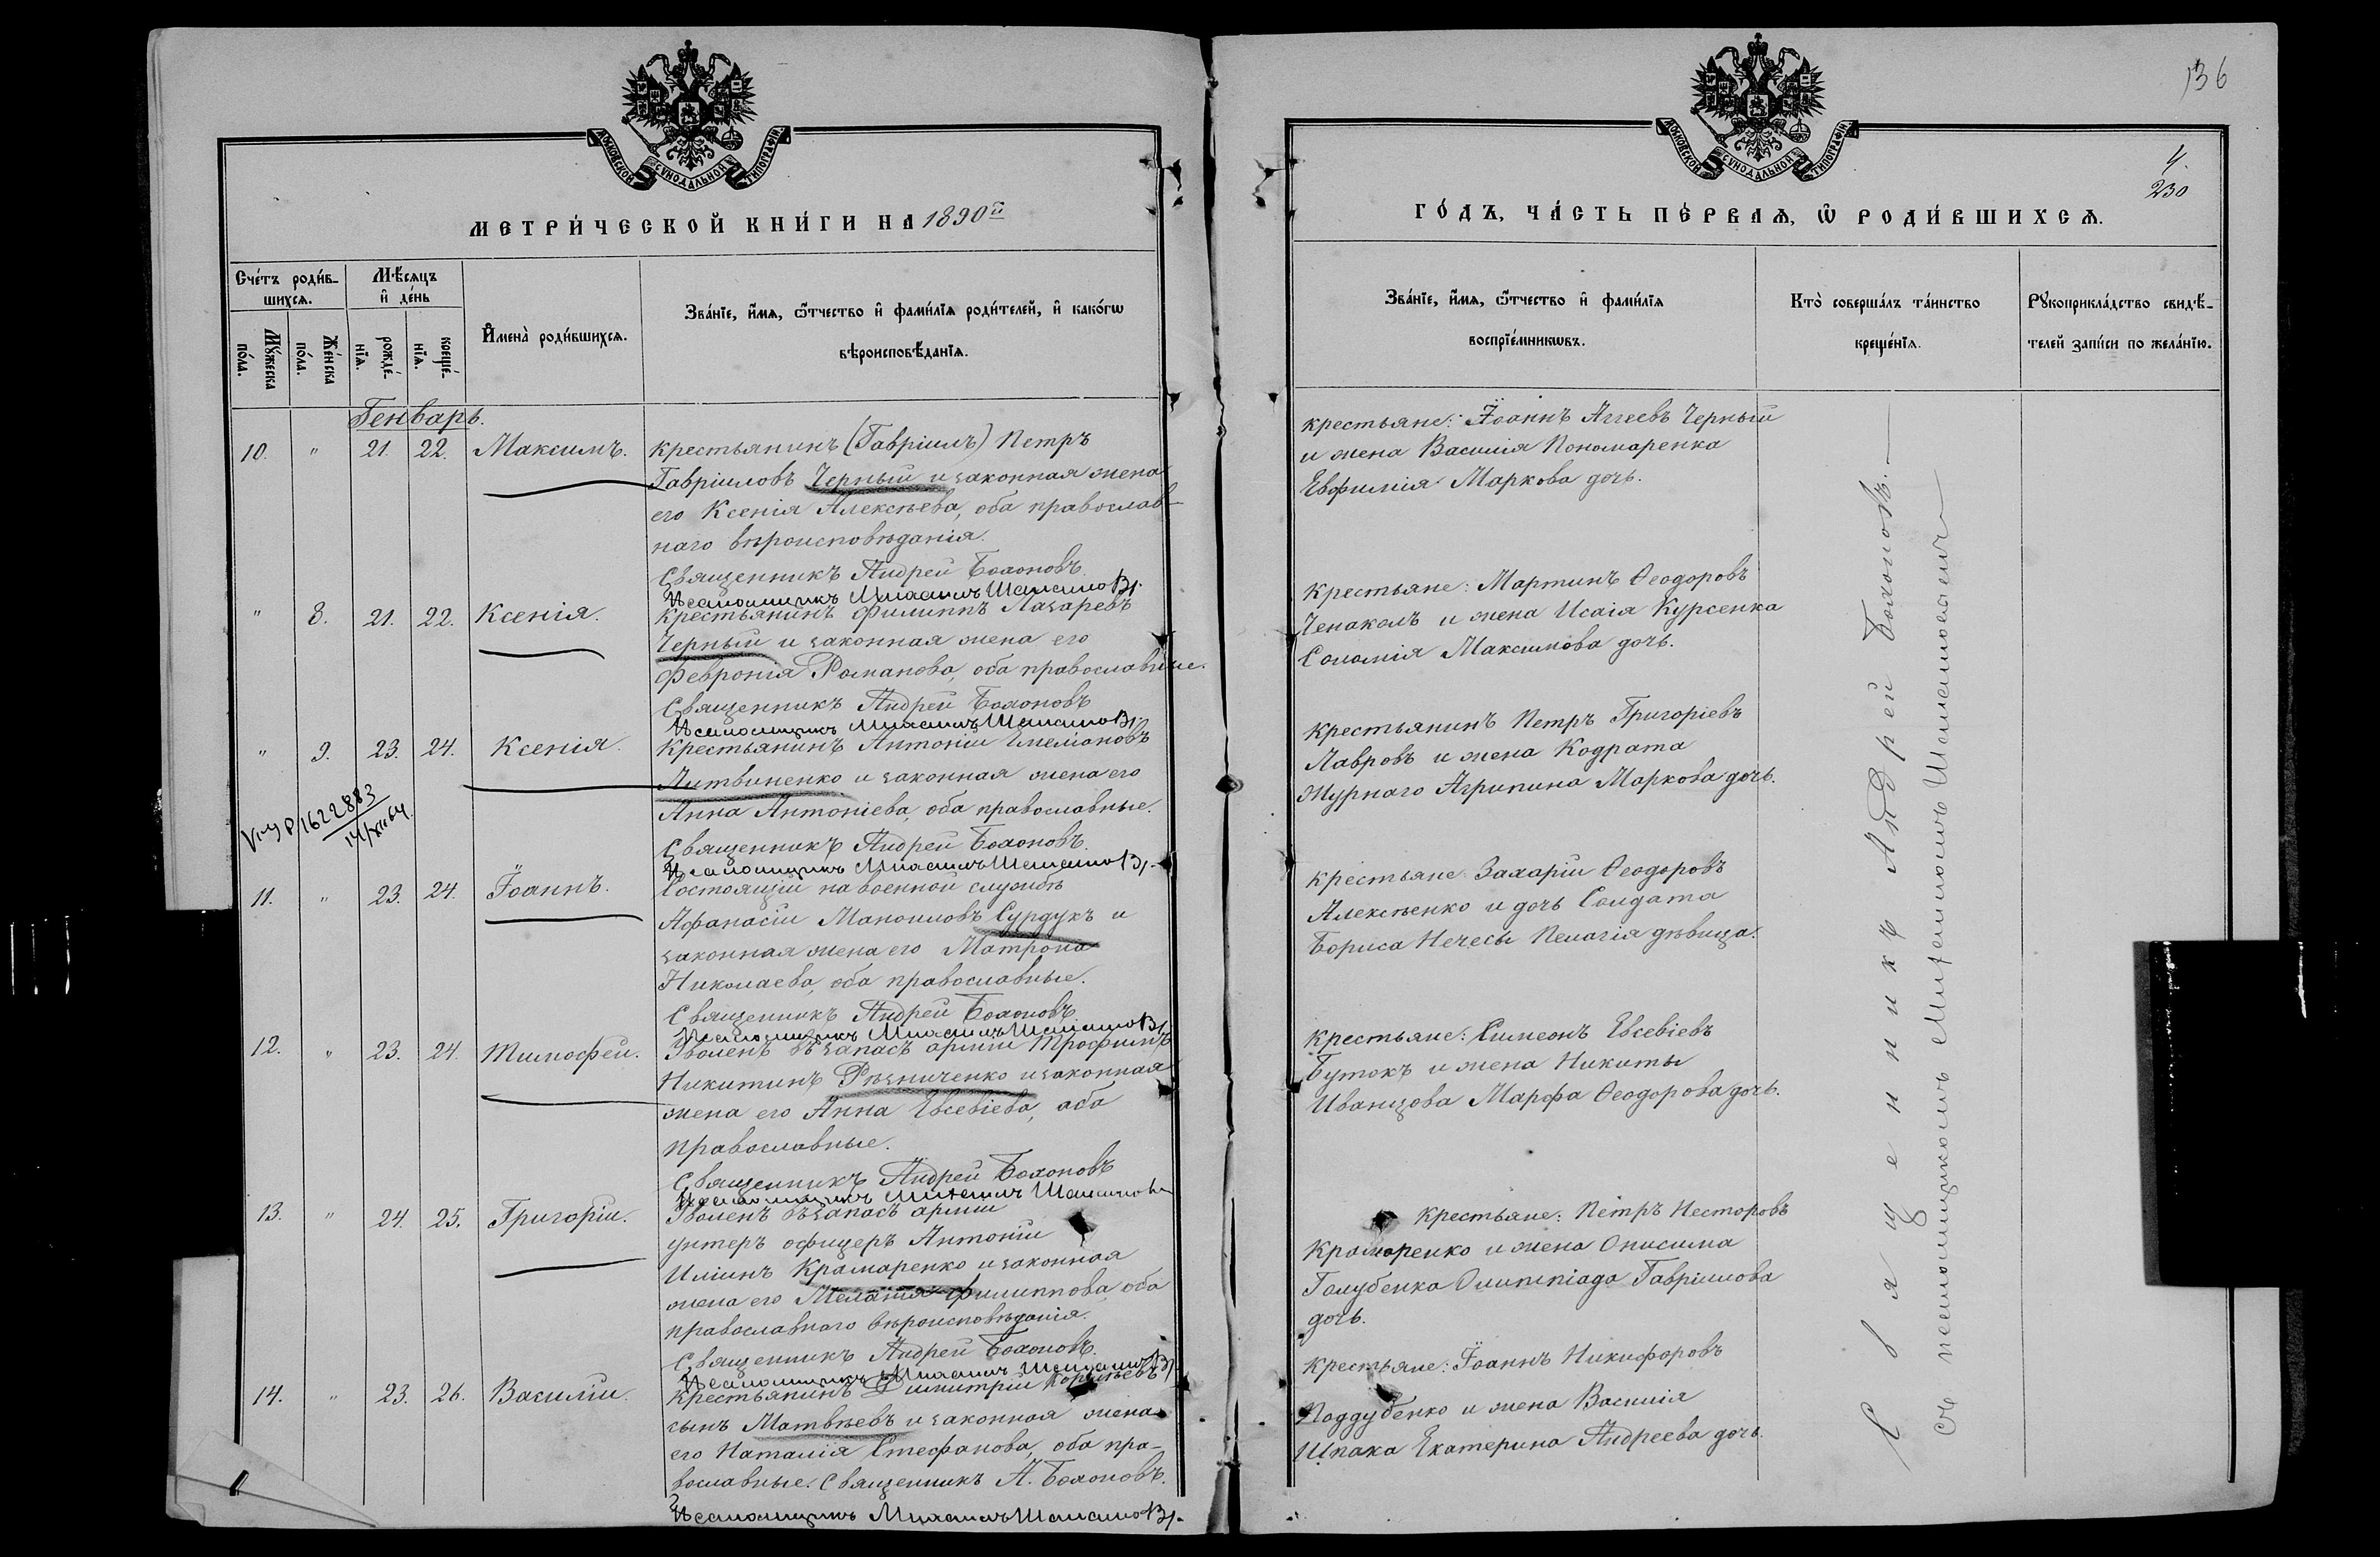 МОСКОВСКОЙ СѴНОДАЛЬНОЙ ТИПОГРАФІИ
МЕТРИ́ЧЕСКОЙ КНИ́ГИ НА 1890й
Сче́тъ роди́в-
шихсѧ.
Мѣ́сѧцъ
и҆ де́нь
Мꙋ́жеска по́ла.
Же́нска по́ла.
рожде́-нїѧ.
креще́-нїѧ.
И҆мена̀ роди́вшихсѧ.
Зва́нїе, и҆́мѧ, ѻ҆́тчество и҆ фами́лїѧ роди́телей, и҆ како́гѡ
вѣроисповѣ́данїѧ.
Генварь.
10. " 21. 22. Максимъ. крестьянинъ (Гавріилъ) Петръ
Гавріиловъ Черный и законная жена
его Ксенія Алексѣева, оба православ-
наго вѣроисповѣданія.
Священникъ Андрей Бохоновъ.
Псаломщикъ Михаилъ
" 8. 21. 22. Ксенія. крестьянинъ Филиппъ Лазаревъ
Черный и законная жена его
Февронія Романова, оба православные.
Священникъ Андрей Бохоновъ
Псаломщикъ Михаилъ
" 9. 23. 24. Ксенія. крестьянинъ Антоній Емеліановъ
Литвиненко и законная жена его
Анна Антоніева, оба православные.
1622883
Священникъ Андрей Бохоновъ.
Псаломщикъ Михаилъ
11. " 23. 24. Іоаннъ. Состоящій на военной службѣ
Афанасій Маноиловъ Сурдукъ и
законная жена его Матрона
Николаева, оба православные.
Священникъ Андрей Бохоновъ
Псаломщикъ Михаилъ
12. " 23. 24. Тимофей. Уволенъ въ запасъ арміи Трофимъ
Никитинъ Рѣзниченко и законная
жена его Анна Евсевіева, оба
православные.
Священникъ Андрей Бохоновъ
Псаломщикъ Михаилъ
13. " 24. 25. Григорій. Уволенъ въ запасъ арміи
унтеръ офицеръ Антоній
Иліинъ Крамаренко и законная
жена его Меланія Филиппова, оба
православнаго вѣроисповѣданія.
Священникъ Андрей Бохоновъ.
Псаломщикъ Михаилъ
14. " 23. 26. Василій. крестьянинъ Димитрій
сынъ Матвѣевъ и законная жена
его Наталія Стефанова, оба пра-
вославные. Священникъ А. Бохоновъ.
Псаломщикъ Михаилъ
136
4.
230
МОСКОВСКОЙ СѴНОДАЛЬНОЙ ТИПОГРАФІИ
ГО́ДЪ, ЧА́СТЬ ПЕ́РВАѦ, Ѡ҆ РОДИ́ВШИХСѦ.
Зва́нїе, и҆́мѧ, ѻ҆́тчество и҆ фами́лїѧ
воспрїе́мникѡвъ.
Кто̀ соверша́лъ та́инство
креще́нїѧ.
Рꙋкоприкла́дство свидѣ́-
телей за́писи по жела́нїю.
крестьяне: Іоаннъ Аггеевъ Черный
и жена Василія Пономаренка
Евфимія Маркова дочь.
крестьяне: Мартинъ Ѳеодоровъ
Ченакалъ и жена Исаія Курсенка
Соломія Максимова дочь.
крестьянинъ Петръ Григоріевъ
Лавровъ и жена Кодрата
Журнаго Агрипина Маркова дочь.
крестьяне Захарій Ѳеодоровъ
Алексѣенко и дочь Солдата
Бориса Нечесы Пелагія дѣвица.
крестьяне: Симеонъ Евсевіевъ
Бутокъ и жена Никиты
Иванцова Марфа Ѳеодорова дочь.
крестьяне: Петръ Несторовъ
Крамаренко и жена Онисима
Голубенка Олимпіада Гавріилова
дочь.
крестьяне: Іоаннъ Никифоровъ
Поддубенко и жена Василія
Шпака Екатерина Андреева дочь.
Священникъ Андрей Бохоновъ.
съ псаломщикомъ Михаиломъ